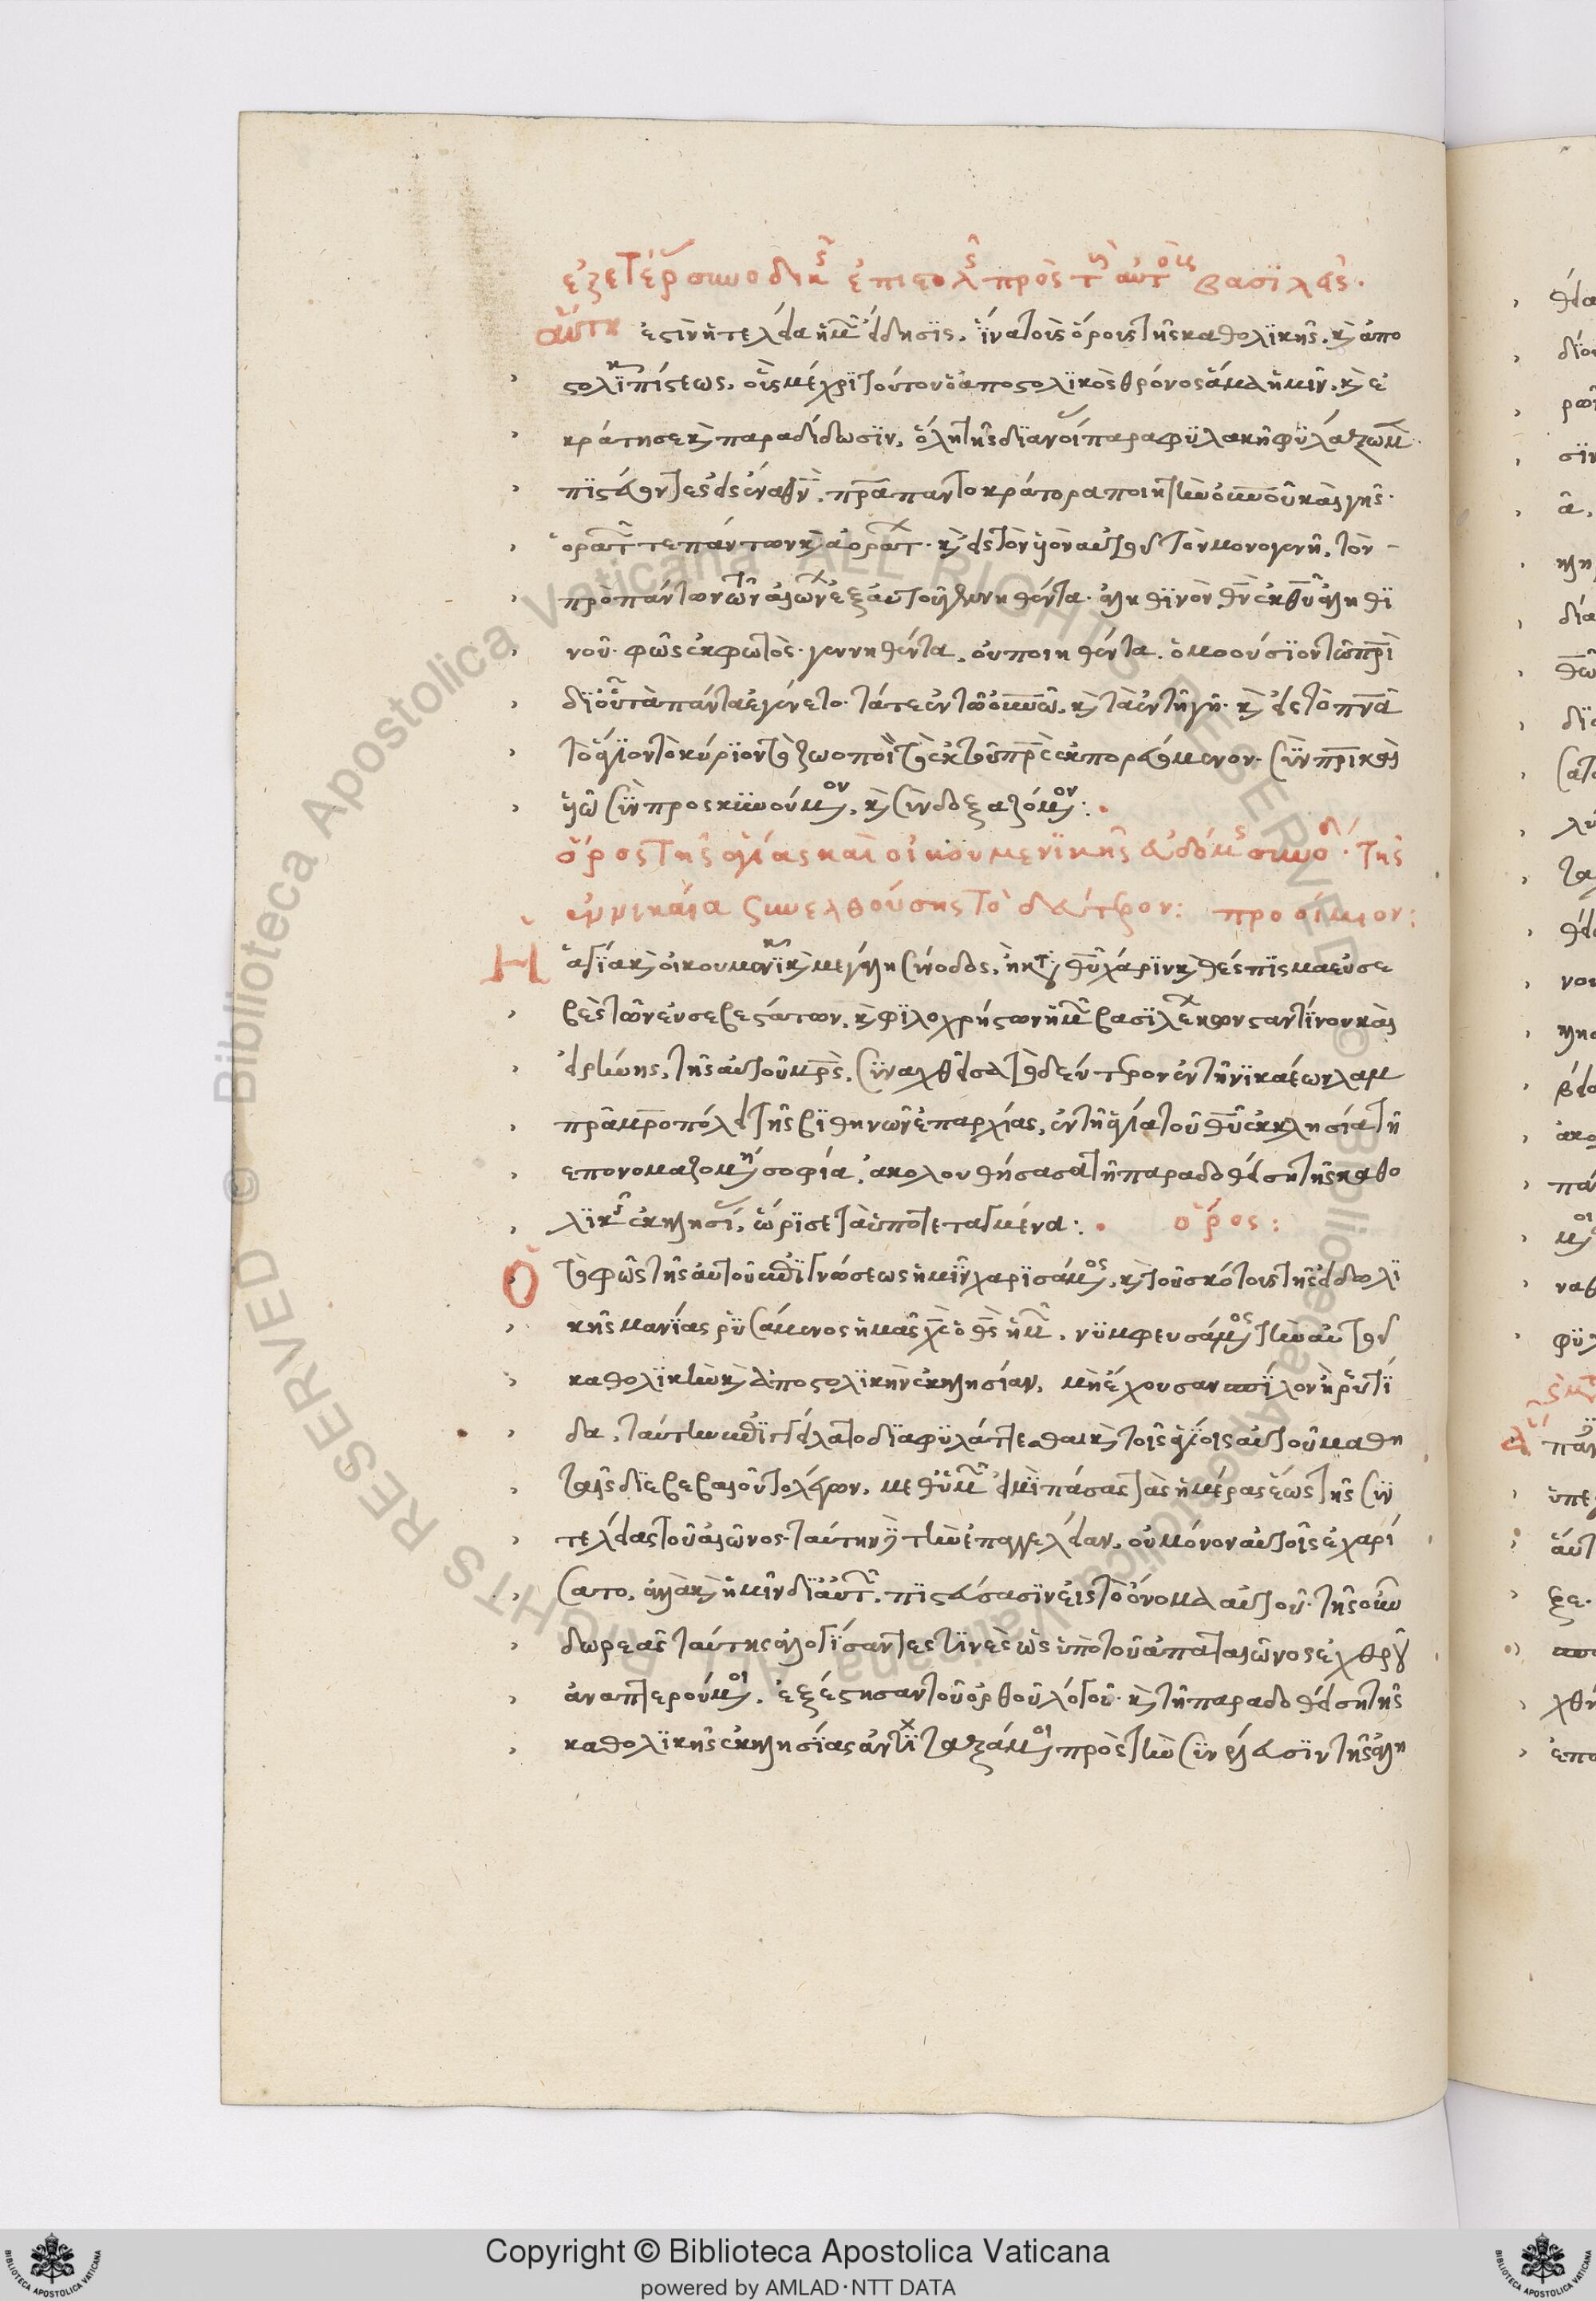 ἐξ ἑτέρ συνοδικῆς ἐπιστολῆς πρὸς τοὺς αὐτοὺς βασιλεῖς.
αὕτη ἐστὶν ἡ τελεία ἡμῶν εἴδησις. ἵνα τοῖς ὅροις τῆς καθολικῆς. καὶ ἀπο
στολικῆς πίστεως. οἷς μέχρι τούτου ὁ ἀποστολικὸς θρόνος ἅμα ἡμῖν. καὶ ἐ
κράτησε καὶ παραδίδωσιν. ὅλῃ τῆς διανοίας παραφυλακῇ φυλάξωμεν
πιστεύοντες εἰς ἕνα θν. πρα παντοκράτορα ποιητὴν οὐνοῦ καὶ γῆς.
ὁρατῶν τε πάντων καὶ ἀοράτων. καὶ εἰς τὸν υἱὸν αὐτοῦ τὸν μονογενῆ. τὸν
πρὸ πάντων τῶν αἰώνων ἐξ αὐτοῦ γεννηθέντα. ἀληθινὸν θν ἐκ θυ ἀληθι
νοῦ. φῶς ἐκ φωτός. γεννηθέντα. οὐ ποιηθέντα. ὁμοούσιον τῷ πρι
δι' οὗ τὰ πάντα ἐγένετο. τά τε ἐν τῷ οὐνῷ. καὶ τὰ ἐν τῇ γῇ. καὶ εἰς τὸ πνα
τὸ ἅγιον τὸ κύριον τὸ ζωοποιὸν τὸ ἐκ τοῦ πρς ἐκπορευόμενον. σὺν πρι καὶ
υἱῷ συνπροσκυνούμενον. καὶ συνδοξαζόμενον:
ὅρος τῆς ἁγίας καὶ οἰκουμενικῆς ἑβδόμης συνόδ. τῆς
ἐν νικαία συνελθούσης τὸ δεύτερον: προοίμιον:
Ἡ ἁγία καὶ οἰκουμενικὴ καὶ μεγάλη σύνοδος. ἡ κατὰ θυ χάριν καὶ θέσπισμα εὐσε
βὲς τῶν εὐσεβεστάτων. καὶ φιλοχρήστων ἡμῶν βασιλέων κωνσταντίνου καὶ
εἰρήνης. τῆς αὐτοῦ μρς. συναχθεῖσα τὸ δεύτερον ἐν τῇ νικαέων λαμ
πρᾷ μροπόλει τῆς βιθηνῶν ἐπαρχίας. ἐν τῇ ἁγίᾳ τοῦ θυ ἐκκλησίᾳ τῇ
ἐπονομαζομένῃ σοφίᾳ. ἀκολουθήσασα τῇ παραδοθείσῃ τῆς καθο
λικῆς ἐκκλησίας. ὥρισε τὰ ὑποτεταγμένα: ὅρος:
Ὁ τὸ φῶς τῆς αὐτοῦ ἐπιγνώσεως ἡμῖν χαρισάμενος. καὶ τοῦ σκότους τῆς εἰδωλι
κῆς μανίας ῥυσάμενος ἡμᾶς χς ὁ θς ἡμῶν. νυμφευσάμενος τὴν αὐτοῦ
καθολικὴν καὶ ἀποστολικὴν ἐκκλησίαν. μὴ ἔχουσαν σπίλον ἢ ῥυτί
δα. ταύτην ἐπιγγείλατο διαφυλάττεσθαι καὶ τοῖς ἁγίοις αὐτοῦ μαθη
ταῖς διεβεβαιοῦτο λέγων. μεθ' ὑμῶν εἰμὶ πάσας τὰς ἡμέρας ἕως τῆς συν
τελείας τοῦ αἰῶνος. ταύτην δὲ τὴν ἐπαγγελείαν. οὐ μόνον αὐτοῖς ἐχαρί
σατο. ἀλλὰ καὶ ἡμῖν δι' αὐτῶν. πιστεύσασιν εἰς τὸ ὄνομα αὐτοῦ. τῆς οὖν
δωρεᾶς ταύτης ἀλογίσαντες τινὲς ὡς ὑπὸ τοῦ ἀπατεῶνος ἐχθροῦ
ἀναπτερούμενοι. ἐξέστησαν τοῦ ὀρθοῦ λόγου. καὶ τῇ παραδοθείσῃ τῆς
καθολικῆς ἐκκλησίας ἀντιταξάμενοι πρὸς τὴν σύνελευσιν τῆς ἀλη
Copyright © Biblioteca Apostolica Vaticana
powered by AMLAD·NTT DATA